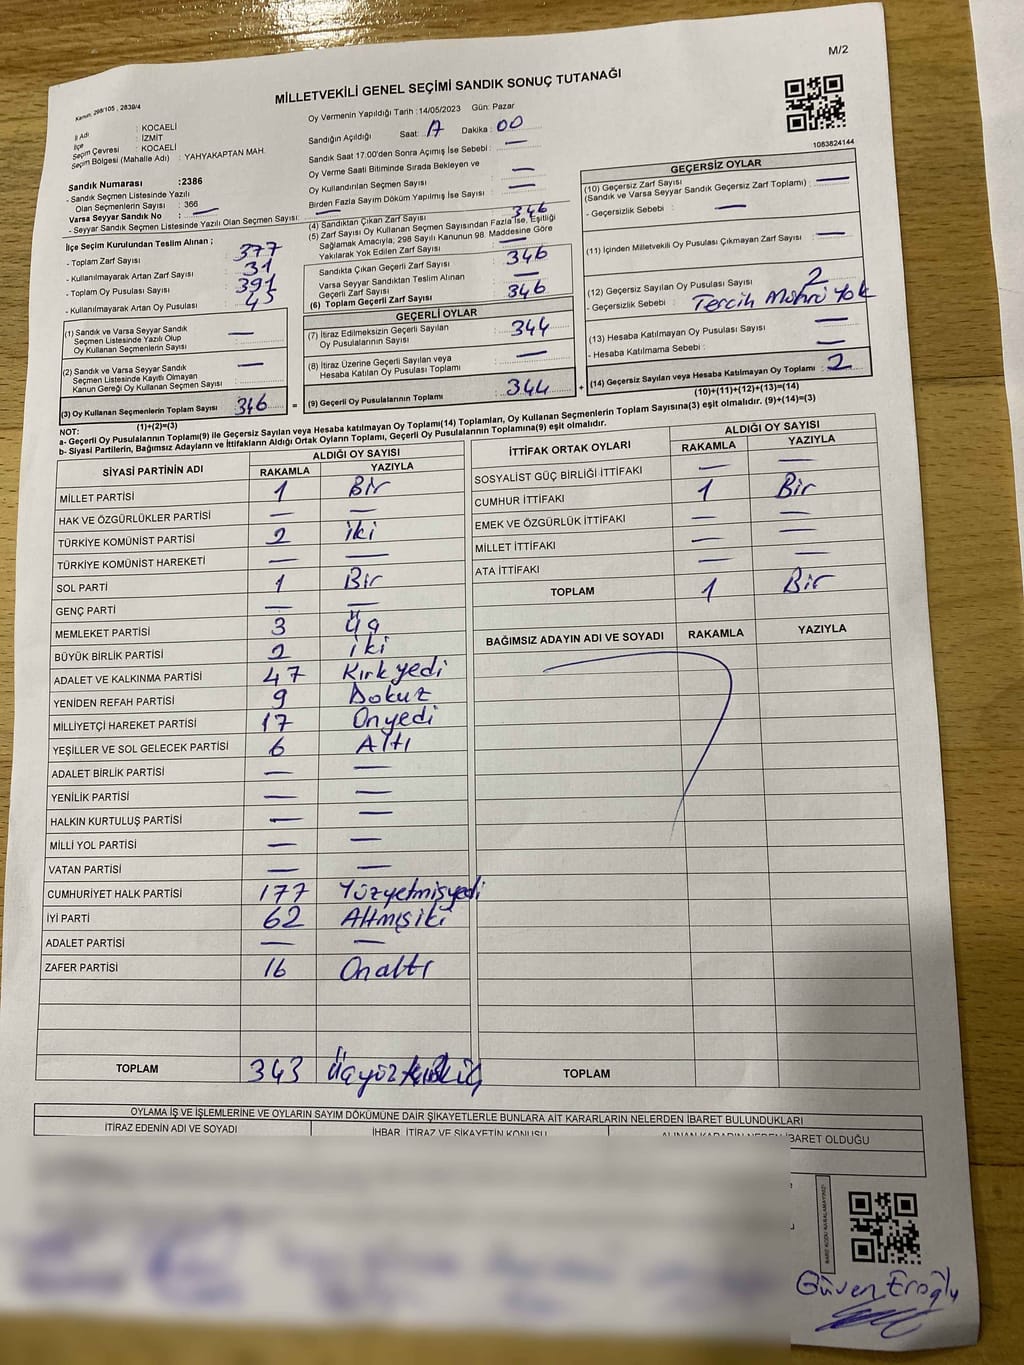 M/2
MİLLETVEKİLİ GENEL SEÇİMİ SANDIK SONUÇ TUTANAĞI
Kanun: 298/105 , 2839/4
İl Adı : KOCAELİ
İlçe : İZMİT
Seçim Çevresi : KOCAELİ
Seçim Bölgesi (Mahalle Adı) : YAHYAKAPTAN MAH.
Sandık Numarası :2386
- Sandık Seçmen Listesinde Yazılı
Olan Seçmenlerin Sayısı : 366
Varsa Seyyar Sandık No : —
- Seyyar Sandık Seçmen Listesinde Yazılı Olan Seçmen Sayısı: —
Oy Vermenin Yapıldığı Tarih :14/05/2023 Gün: Pazar
Sandığın Açıldığı Saat: 17 Dakika : 00
Sandık Saat 17:00'den Sonra Açmış İse Sebebi : —
Oy Verme Saati Bitiminde Sırada Bekleyen ve
Oy Kullandırılan Seçmen Sayısı —
Birden Fazla Sayım Döküm Yapılmış İse Sayısı —
1083824144
İlçe Seçim Kurulundan Teslim Alınan ;
- Toplam Zarf Sayısı : 377
- Kullanılmayarak Artan Zarf Sayısı : 31
- Toplam Oy Pusulası Sayısı : 391
- Kullanılmayarak Artan Oy Pusulası : 45
(1) Sandık ve Varsa Seyyar Sandık
Seçmen Listesinde Yazılı Olup
Oy Kullanan Seçmenlerin Sayısı —
(2) Sandık ve Varsa Seyyar Sandık
Seçmen Listesinde Kayıtlı Olmayan
Kanun Gereği Oy Kullanan Seçmen Sayısı —
(3) Oy Kullanan Seçmenlerin Toplam Sayısı 346 =
(1)+(2)=(3)
(4) Sandıktan Çıkan Zarf Sayısı : 346
(5) Zarf Sayısı Oy Kullanan Seçmen Sayısından Fazla İse, Eşitliği
Sağlamak Amacıyla; 298 Sayılı Kanunun 98. Maddesine Göre
Yakılarak Yok Edilen Zarf Sayısı —
Sandıkta Çıkan Geçerli Zarf Sayısı : 346
Varsa Seyyar Sandıktan Teslim Alınan
Geçerli Zarf Sayısı —
(6) Toplam Geçerli Zarf Sayısı : 346
GEÇERLİ OYLAR
(7) İtiraz Edilmeksizin Geçerli Sayılan
Oy Pusulalarının Sayısı : 344
(8) İtiraz Üzerine Geçerli Sayılan veya
Hesaba Katılan Oy Pusulası Toplamı —
(9) Geçerli Oy Pusulalarının Toplamı : 344 +
GEÇERSİZ OYLAR
(10) Geçersiz Zarf Sayısı
(Sandık ve Varsa Seyyar Sandık Geçersiz Zarf Toplamı) : —
- Geçersizlik Sebebi : —
(11) İçinden Milletvekili Oy Pusulası Çıkmayan Zarf Sayısı : —
(12) Geçersiz Sayılan Oy Pusulası Sayısı : 2
- Geçersizlik Sebebi : Tercih Mührü Yok
(13) Hesaba Katılmayan Oy Pusulası Sayısı : —
- Hesaba Katılmama Sebebi : —
(14) Geçersiz Sayılan veya Hesaba Katılmayan Oy Toplamı : 2
(10)+(11)+(12)+(13)=(14)
NOT:
a- Geçerli Oy Pusulalarının Toplamı(9) ile Geçersiz Sayılan veya Hesaba katılmayan Oy Toplamı(14) Toplamları, Oy Kullanan Seçmenlerin Toplam Sayısına(3) eşit olmalıdır. (9)+(14)=(3)
b- Siyasi Partilerin, Bağımsız Adayların ve İttifakların Aldığı Ortak Oyların Toplamı, Geçerli Oy Pusulalarının Toplamına(9) eşit olmalıdır.
SİYASİ PARTİNİN ADI ALDIĞI OY SAYISI
RAKAMLA YAZIYLA
MİLLET PARTİSİ 1 Bir
HAK VE ÖZGÜRLÜKLER PARTİSİ — —
TÜRKİYE KOMÜNİST PARTİSİ 2 iki
TÜRKİYE KOMÜNİST HAREKETİ — —
SOL PARTİ 1 Bir
GENÇ PARTİ — —
MEMLEKET PARTİSİ 3 üç
BÜYÜK BİRLİK PARTİSİ 2 iki
ADALET VE KALKINMA PARTİSİ 47 Kırkyedi
YENİDEN REFAH PARTİSİ 9 Dokuz
MİLLİYETÇİ HAREKET PARTİSİ 17 Onyedi
YEŞİLLER VE SOL GELECEK PARTİSİ 6 Altı
ADALET BİRLİK PARTİSİ — —
YENİLİK PARTİSİ — —
HALKIN KURTULUŞ PARTİSİ — —
MİLLİ YOL PARTİSİ — —
VATAN PARTİSİ — —
CUMHURİYET HALK PARTİSİ 177 Yüzyetmişyedi
İYİ PARTİ 62 Altmışiki
ADALET PARTİSİ — —
ZAFER PARTİSİ 16 Onaltı
TOPLAM 343
İTTİFAK ORTAK OYLARI ALDIĞI OY SAYISI
RAKAMLA YAZIYLA
SOSYALİST GÜÇ BİRLİĞİ İTTİFAKI — —
CUMHUR İTTİFAKI 1 Bir
EMEK VE ÖZGÜRLÜK İTTİFAKI — —
MİLLET İTTİFAKI — —
ATA İTTİFAKI — —
TOPLAM 1 Bir
BAĞIMSIZ ADAYIN ADI VE SOYADI RAKAMLA YAZIYLA
TOPLAM
OYLAMA İŞ VE İŞLEMLERİNE VE OYLARIN SAYIM DÖKÜMÜNE DAİR ŞİKAYETLERLE BUNLARA AİT KARARLARIN NELERDEN İBARET BULUNDUKLARI
İTİRAZ EDENİN ADI VE SOYADI İHBAR, İTİRAZ VE ŞİKAYETİN KONUSU ALINAN KARARIN NEDEN İBARET OLDUĞU
Güven Eroğlu